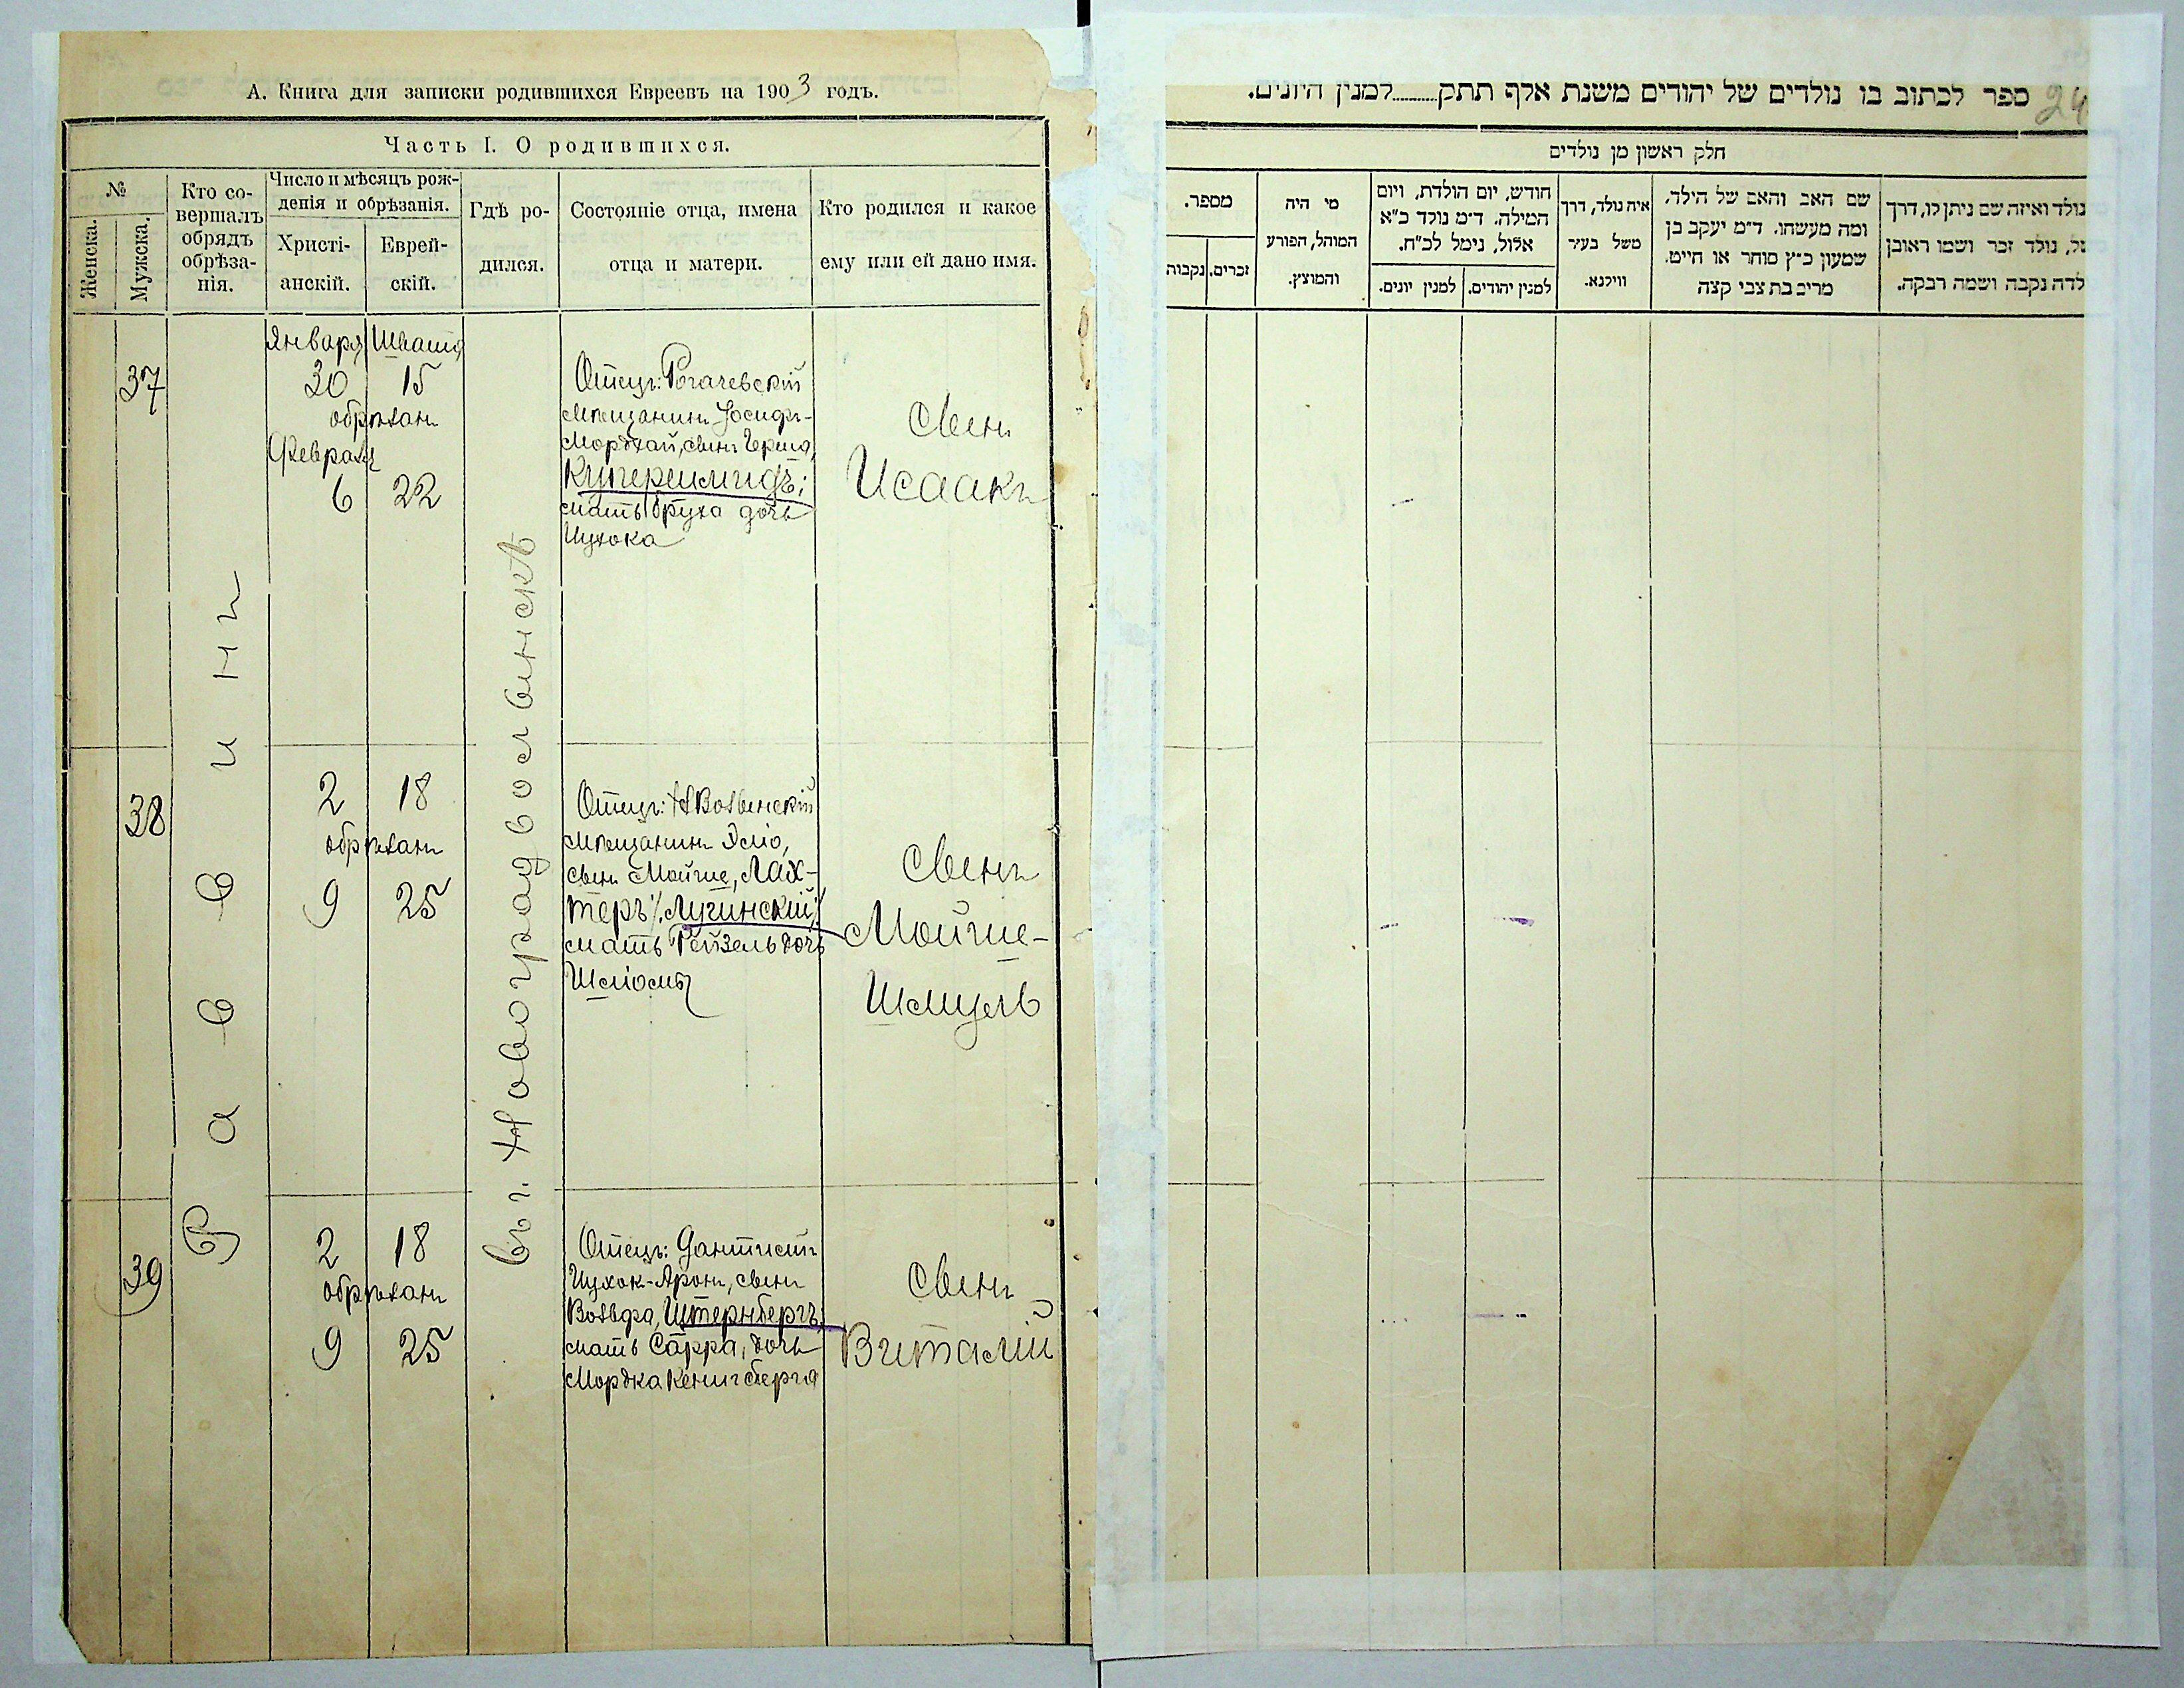 А. Книга для записки родившихся Евреевъ на 1903 годъ.
Часть I. О родившихся.
№
Женска.
Мужска.
Кто со-
вершалъ
обрядъ
обрѣза-
нія.
Число и мѣсяцъ рож-
денія и обрѣзанія.
Христі-
анскій.
Еврей-
скій.
Гдѣ ро-
дился.
Состояніе отца, имена
отца и матери.
Кто родился и какое
ему или ей дано имя.
Раввинъ
въ г. Новоградволынскѣ
37
Января Швата
30 15
обрѣзанъ
Февраля
6 22
Отецъ: Рогачевскій
мѣщанинъ Іосифъ-
Мордхай, сынъ Герша,
Купершмидъ;
мать Бруха дочь
Ицхока
сынъ
Исаакъ
38
2 18
обрѣзанъ
9 25
Отецъ: НВолынскій
мѣщанинъ Эліо,
сынъ Мойше, Лах-
теръ ./. Лугинскій;
мать Рейзель дочь
Шліомы
сынъ
Мойше-
Шмуль
39
2 18
обрѣзанъ
9 25
Отецъ: Дантистъ
Ицхок-Аронъ, сынъ
Вольфа, Штернбергъ,
мать Сарра, дочь
Мордка Кенигберга
сынъ
Виталій
24
ספר לכתוב בו נולדים של יהודים משנת אלף תתק........למנין היונים.
חלק ראשון מן נולדים
מספר.
זכרים.
נקבות
מי היה
המוהל, הפורע
והמוצץ.
חודש, יום הולדת, ויום
המילה. ד״מ נולד כ״א
אלול, נימל לכ״ח.
למנין יונים.
למנין יהודים.
איה נולד, דרך
משל בעיר
ווילנא.
שם האב והאם של הילד,
ומה מעשהו. ד״מ יעקב בן
שמעון כ״ץ סוחר או חייט.
מרים בת צבי קצה
נולד ואיזה שם ניתן לו, דרך
של, נולד זכר ושמו ראובן
לדה נקבה ושמה רבקה.